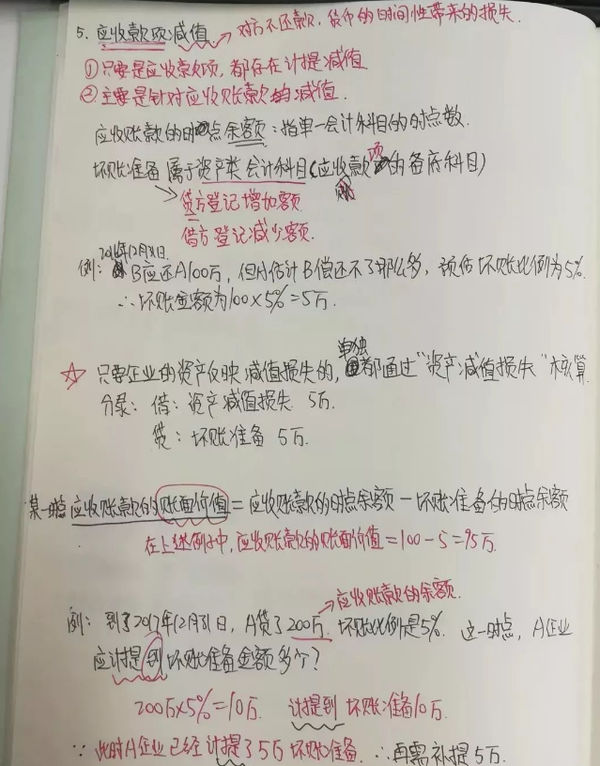 5. 应收款项减值 → 对方不还款,货币的时间性带来的损失.
①只要是应收款项,都存在计提减值
②主要是针对应收账款的减值.
应收账款的时点余额:指单一会计科目的时点数.
坏账准备属于资产类会计科目(应收款项的备府科目)
贷方登记增加额
借方登记减少额.
2016年12月31日.
例: B应还A100万,但A估计B偿还不了那么多,预估坏账比例为5%.
∴坏账金额为100×5%=5万.
☆ 只要企业的资产反映减值损失的,单独都通过"资产减值损失"核算
分录:借:资产减值损失 5万.
贷:坏账准备 5万.
某一时点应收账款的账面价值=应收账款的时点余额-坏账准备的时点余额
在上述例子中,应收账款的账面价值=100-5=95万.
→应收账款的余额.
例:到了2017年12月31日,A贷了200万.坏账比例是5%.这一时点,A企业
应计提到坏账准备金额多个?
200万×5%=10万. 计提到坏账准备10万.
∵此时A企业已经计提了5万坏账准备.∴再需补提5万.